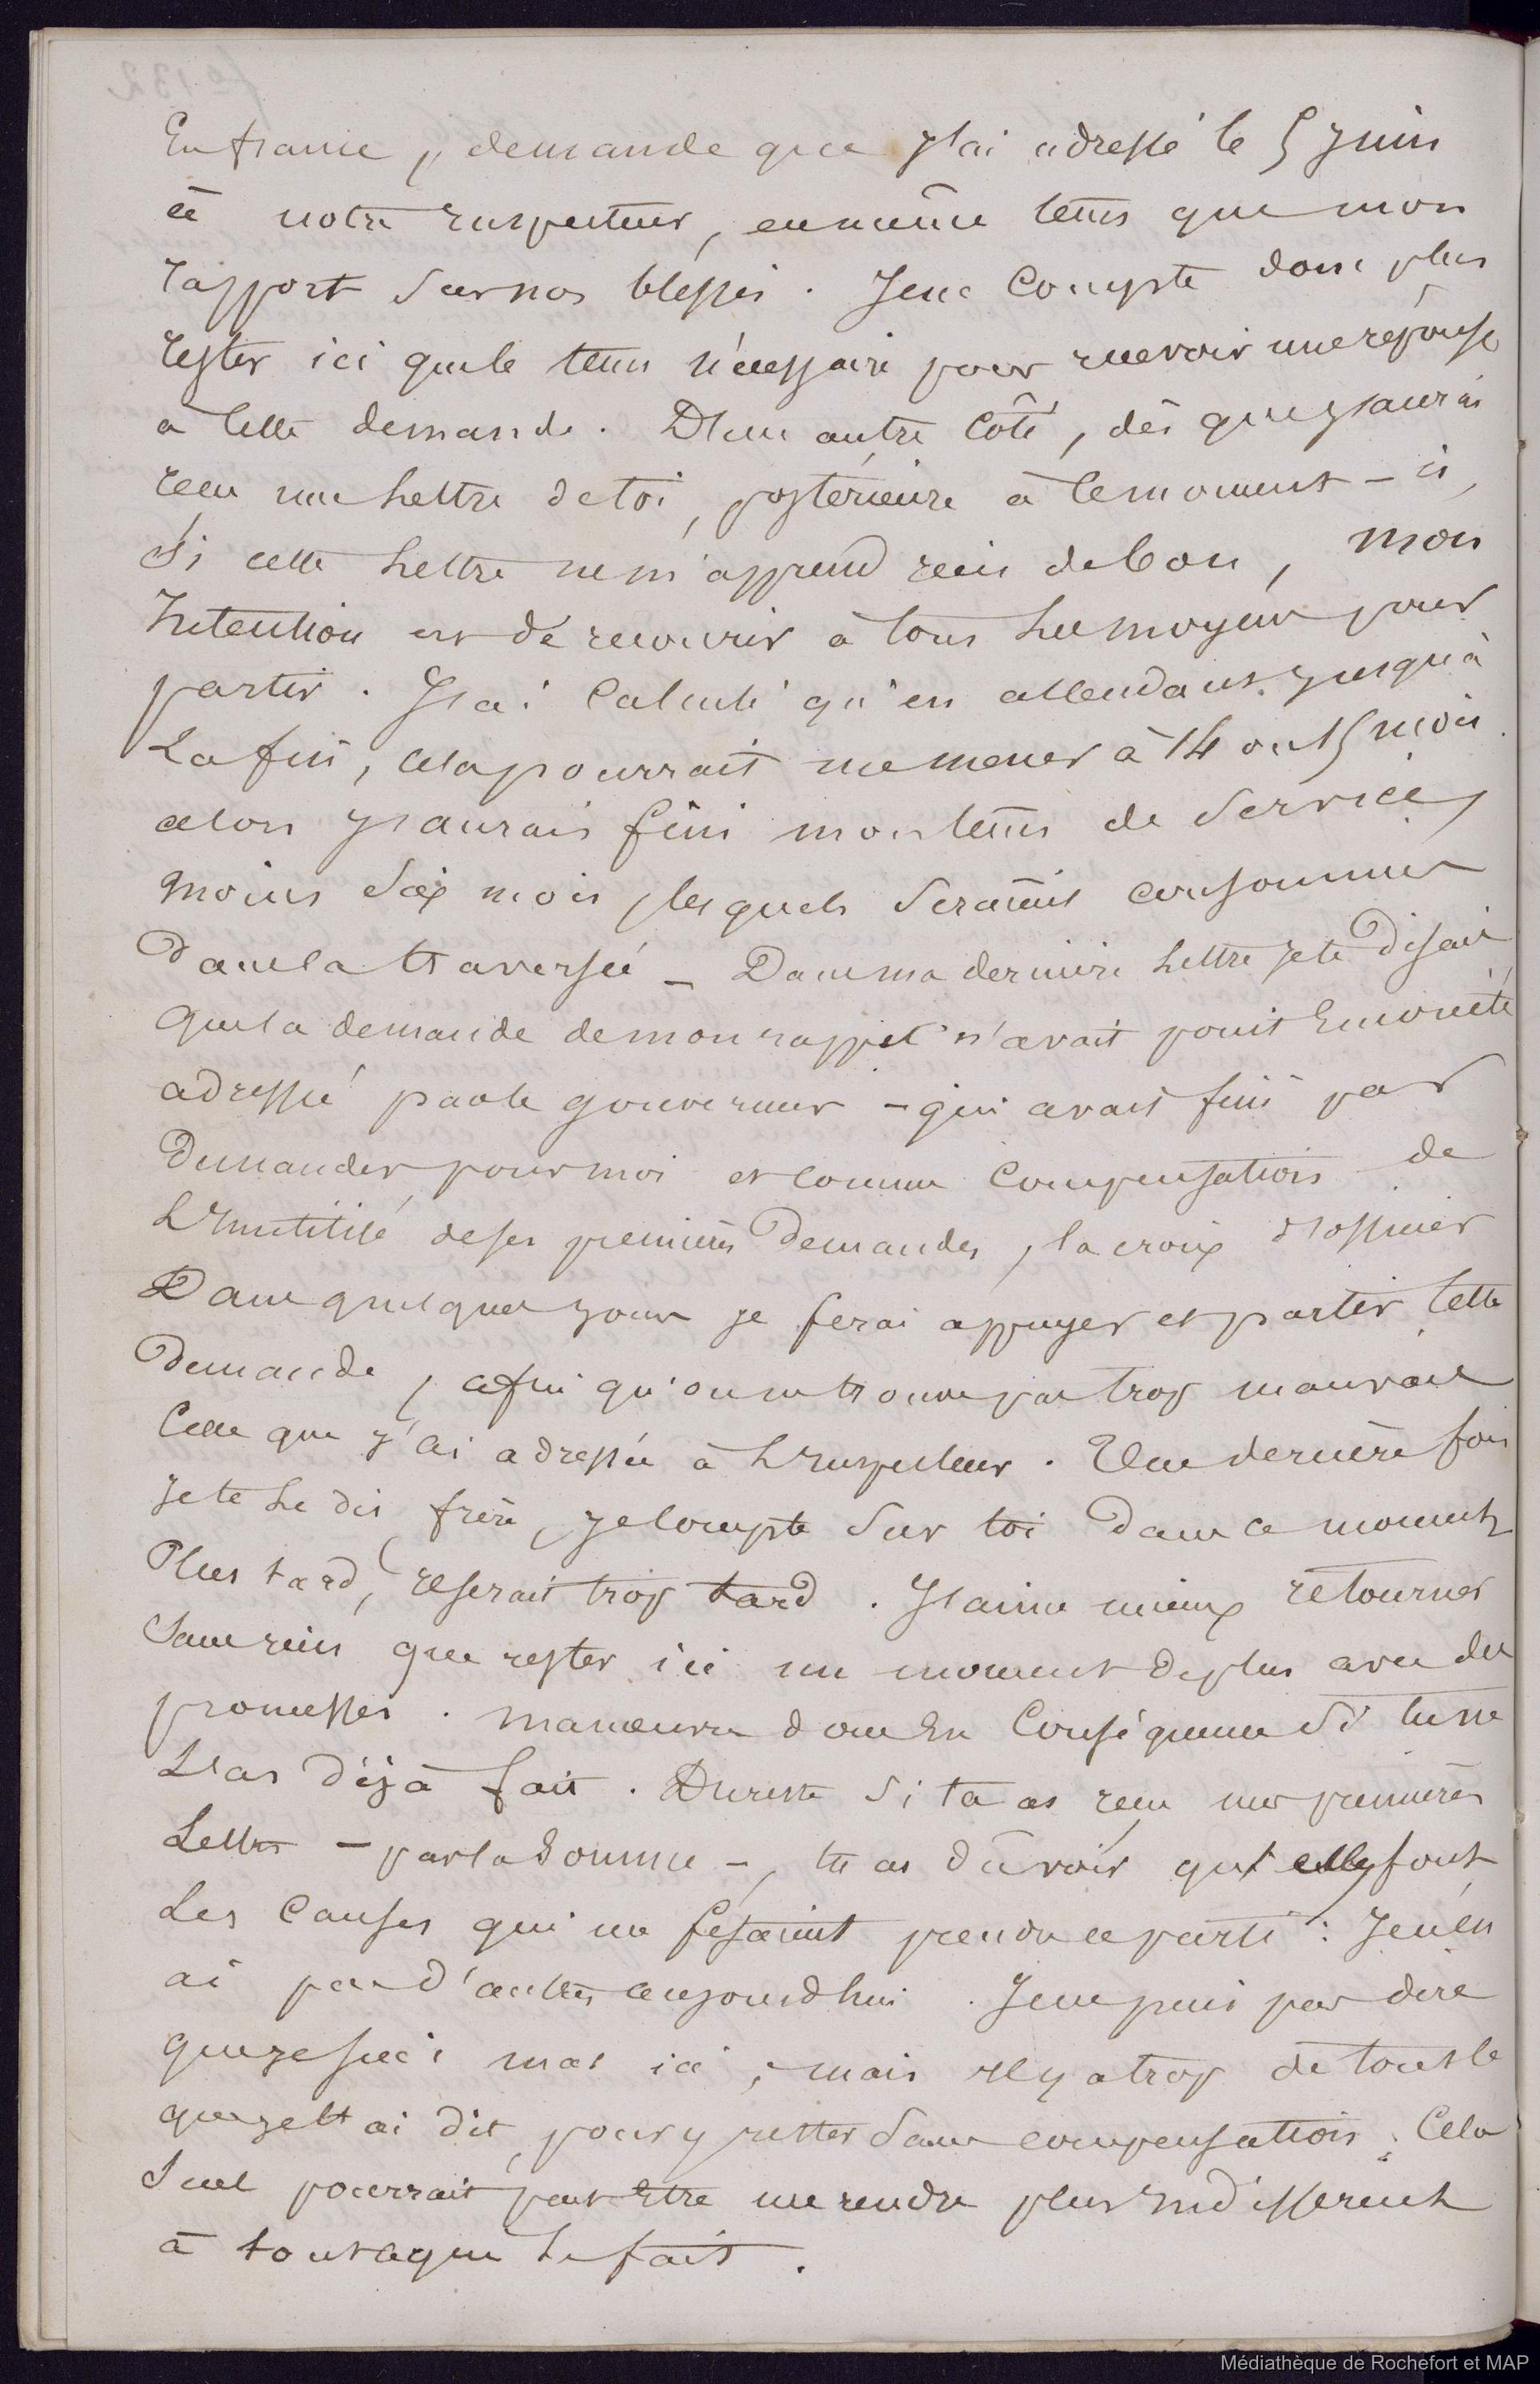 En france, demande que j'ai adressé le 5 Juin
à notre Inspecteur, en même tems que mon
rapport sur nos blessés. Je ne compte donc plus
rester ici que le tems nécessaire pour recevoir une réponse
à cette demande. D'un autre côté, dès que j'aurai
reçu une lettre de toi, postérieure à ce moment-ci,
Si cette lettre ne m'apprend rien de bon, mon
Intention est de recourir à tous les moyens pour
partir. J'ai calculé qu'en attendant jusqu'à
La fin, cela pourrait me mener à 14 ou 15 mois
alors j'aurais fini mon tems de service,
moins six mois, lesquels seraient consommés
Dans la traversée _ Dans ma dernière lettre je te Disais
que la demande de mon rappel n'avait point Encor été
adressée par le gouverneur - qui avait fini par
Demander pour moi et comme compensation de
L'Inutilité de ses premières Demandes, la croix d'officier
Dans quelques jours je ferai appuyer et partir cette
Demande, afin qu'on ne trouve pas trop mauvais
Celle que j'ai adressée à l'Inspecteur. Une dernière fois
Je te le dis, frère, je compte sur toi Dans ce moment,
Plus tard, Il serait trop tard. J'aime mieux retourner
Sans rien que rester ici un moment de plus avec des
promesses. manœuvre donc En Conséquence si tu ne
L'as déjà fait. Du reste si tu as reçu mes premières
Lettres - par la Somme -, tu as dû voir quelles sont
Les causes qui me fesaient prendre ce parti: Je n'en
ai pas d'autres aujourdhui. Je ne puis pas dire
que je suis mal ici, mais Il y a trop de tout ce
que je t'ai dit, pour y rester sans compensation. Cela
Seul pourrait peut Etre me rendre plus Indifférent
à tout ce qui se fait.
Médiathèque de Rochefort et MAP